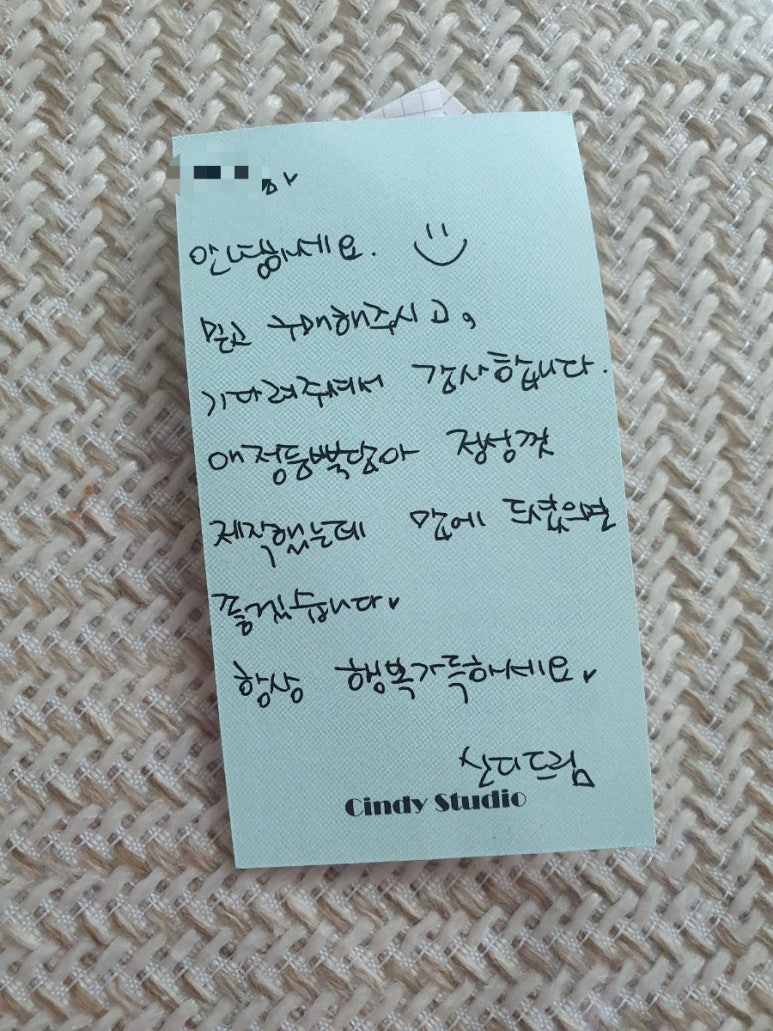 님♥
안녕하세요.
믿고 구매해주시고,
기다려주셔서 감사합니다.
애정듬뿍담아 정성껏
제작했는데 맘에 드셨으면
좋겠습니다♥
항상 행복가득하세요♥
신디드림
Cindy Studio